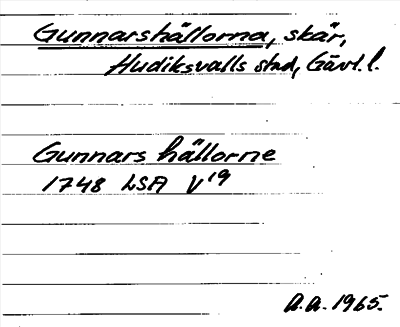 Gunnarshällorna, skär,
Hudiksvalls stad, Gävl. l.
Gunnars hällorne
1748 LSA V19
A.A. 1965.